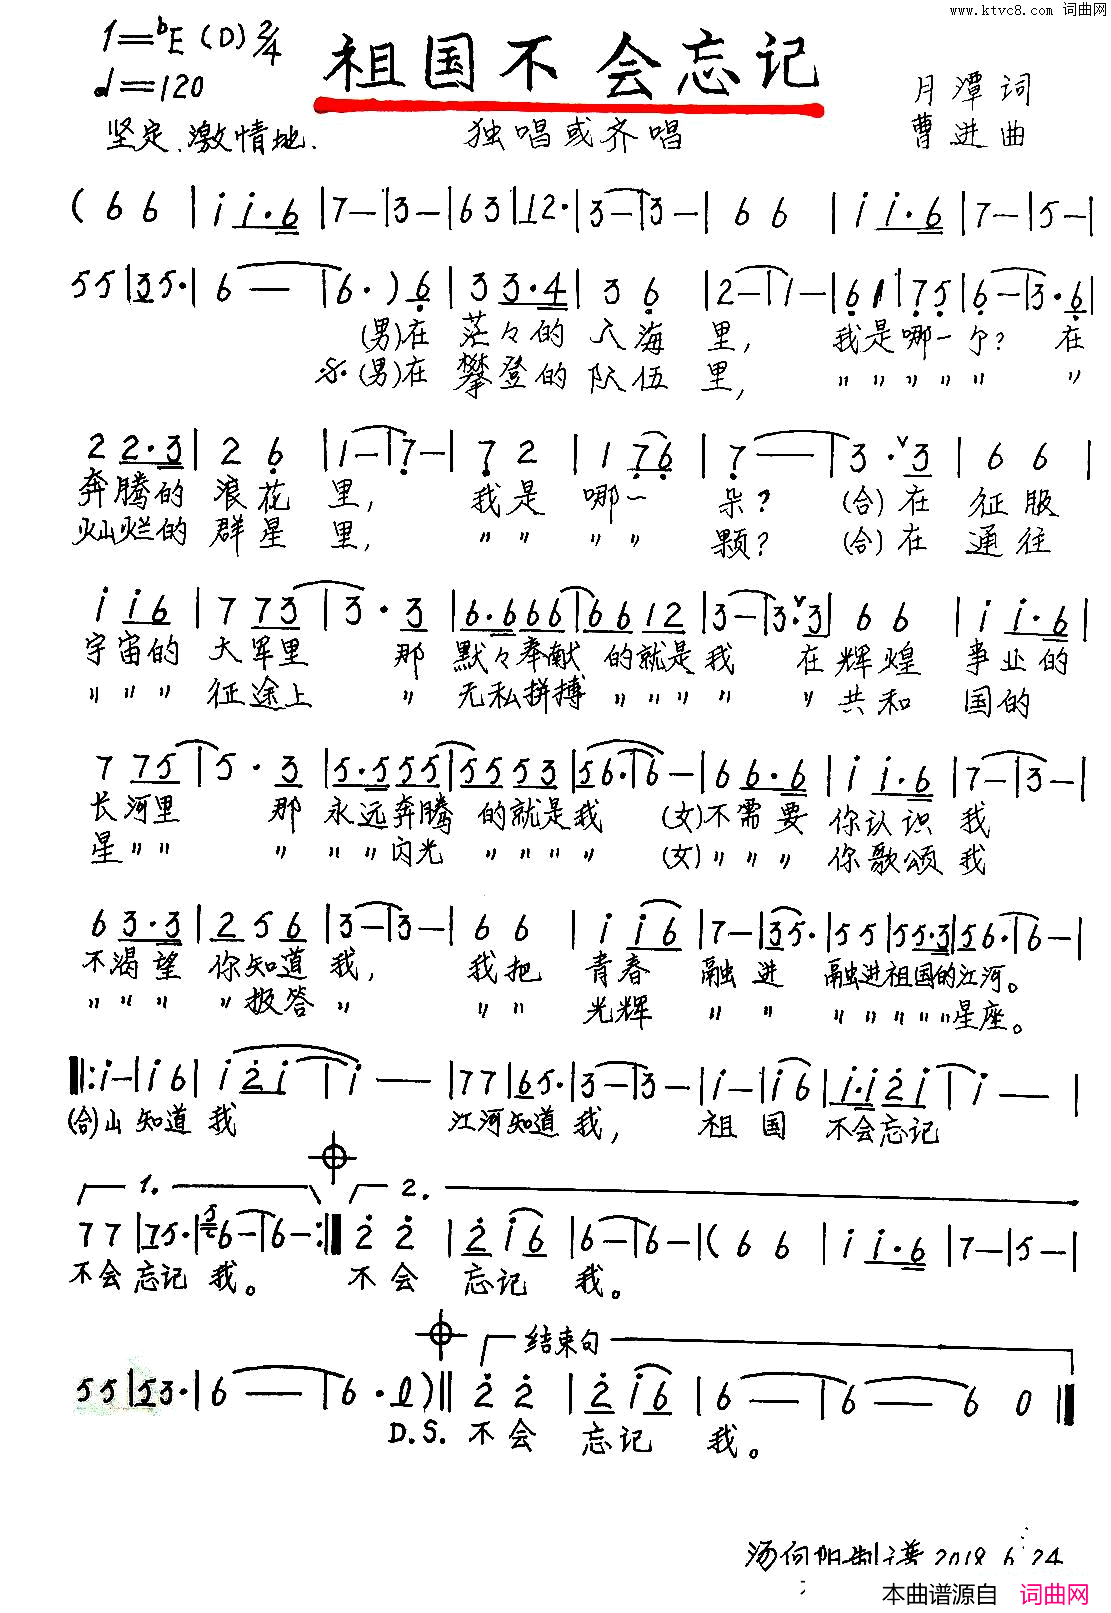 www.ktvc8.com 词曲网
1=♭E (D) 2/4
祖国不会忘记
♩=120
月潭 词
坚定、激情地.
独唱或齐唱
曹进 曲
( 6 6 | i i·6 | 7— | 3— | 6 3 | 12· | 3— | 3— | 6 6 | i i·6 | 7— | 5— |
5 5 | 3 5· | 6 — | 6· ) 6 | 3 3·4 | 3 6 | 2— | 1— | 6 1 | 7 5 | 6— | 3·6 |
(男)在 茫々的 人海 里, 我是哪一个? 在
(男)在 攀登的 队伍 里, 〃 〃 〃 〃 〃 〃
2 2·3 | 2 6 | 1— | 7— | 7 2 | 1 7 6 | 7 — | 3 · 3 | 6 6 |
奔腾的 浪花 里, 我是 哪一 朵? (合)在 征服
灿烂的 群星 里, 〃 〃 〃 〃 颗? (合)在 通往
i i 6 | 7 7 3 | 3 · 3 | 6·6 6 6 | 6 6 1 2 | 3— | 3·3 | 6 6 | i i·6 |
宇宙的 大军里 那 默々奉献 的就是我 在辉煌 事业的
〃 〃 〃 征途上 〃 无私拼搏 〃 〃 〃 〃 〃 共和 国的
7 7 5 | 5 · 3 | 5·5 5 5 | 5 5 5 3 | 5 6· | 6— | 6 6·6 | i i·6 | 7— | 3— |
长河里 那 永远奔腾 的就是我 (女)不需要 你认识 我
星 〃 〃 〃 〃 〃 闪光 〃 〃 〃 〃 (女)〃 〃 〃 你歌颂 我
6 3·3 | 2 5 6 | 3— | 3— | 6 6 | i i 6 | 7— | 3 5· | 5 5 | 5 5·3 | 5 6· | 6— |
不渴望 你知道 我, 我把 青春 融 进 融进祖国的江河。
〃 〃 〃 〃报答 〃 〃 〃 光辉 〃 〃 〃 〃 〃 〃 〃星座。
‖: i— | i 6 | i 2 i | i — | 7 7 | 6 5· | 3— | 3— | i— | i 6 | i·i 2 i | i — |
(合)山 知道 我 江河知道 我, 祖 国 不会忘记
1. 2.
7 7 | 7 5· | 6— | 6— :‖ 2 2 | 2 i 6 | 6— | 6— | ( 6 6 | i i·6 | 7— | 5— |
不会 忘记 我。 不 会 忘记 我。
结束句
5 5 | 5 3· | 6 — | 6 · 0 ) ‖ 2 2 | 2 i 6 | 6— | 6— | 6 0 ‖
D.S. 不 会 忘记 我。
汤向阳制谱 2018.6.24
本曲谱源自 词曲网